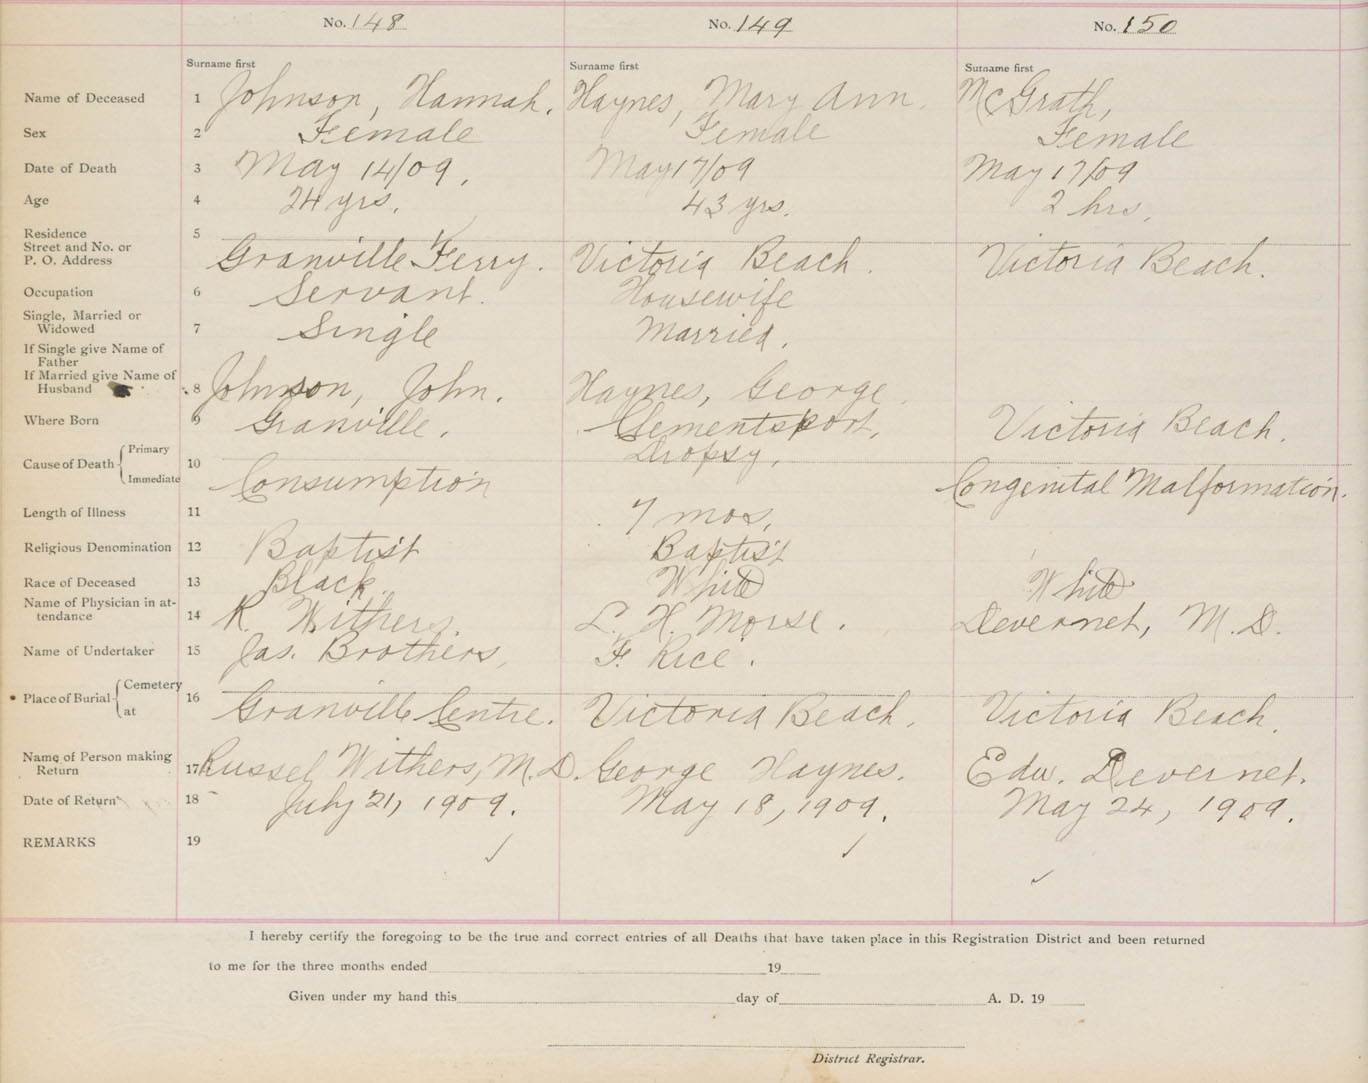 No. 148 No. 149 No. 150
Surname first Surname first Surname first
Name of Deceased 1 Johnson, Hannah. Haynes, Mary Ann. McGrath,
Sex 2 Female Female Female
Date of Death 3 May 14/09. May 17/09 May 17/09
Age 4 24 yrs. 43 yrs. 2 hrs.
Residence 5
Street and No. or
P. O. Address Granville Ferry. Victoria Beach. Victoria Beach.
Occupation 6 Servant. Housewife
Single, Married or
Widowed 7 Single Married.
If Single give Name of
Father
If Married give Name of
Husband 8 Johnson, John. Haynes, George.
Where Born 9 Granville. Clementsport. Victoria Beach.
Cause of Death { Primary Dropsy.
10
Immediate Consumption Congenital Malformation.
Length of Illness 11 7 mos.
Religious Denomination 12 Baptist Baptist
Race of Deceased 13 Black White White
Name of Physician in at-
tendance 14 R. Withers L. H. Morse. Devernet, M. D.
Name of Undertaker 15 Jas. Brothers, F. Rice.
Place of Burial { Cemetery
16
at Granville Centre. Victoria Beach. Victoria Beach.
Name of Person making
Return 17 Russel Withers, M. D. George Haynes. Edw. Devernet.
Date of Return 18 July 21, 1909. May 18, 1909. May 24, 1909.
REMARKS 19 ✓ ✓ ✓
I hereby certify the foregoing to be the true and correct entries of all Deaths that have taken place in this Registration District and been returned
to me for the three months ended 19
Given under my hand this day of A. D. 19
District Registrar.